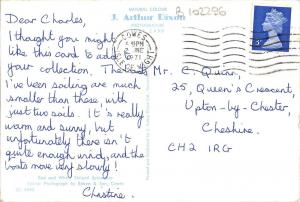 NATURAL COLOUR
J. Arthur Dixon
PHOTOGRAPHIC
R 102296
COWES
PM
1971
Dear Charles,
I thought you might
like this card to add
your collection. The boats
I've been sailing are much
smaller than these, with
just two sails. It's really
warm and sunny, but
unfortunately there isn't
quite enough wind, and the
boats move very slowly!
Christine.
Mr. C. Quarr,
25, Queen's Crescent,
Upton-by-Chester,
Cheshire.
CH2 1RG
Red and White Striped Spinnaker
Colour Photograph by Beken & Son, Cowes